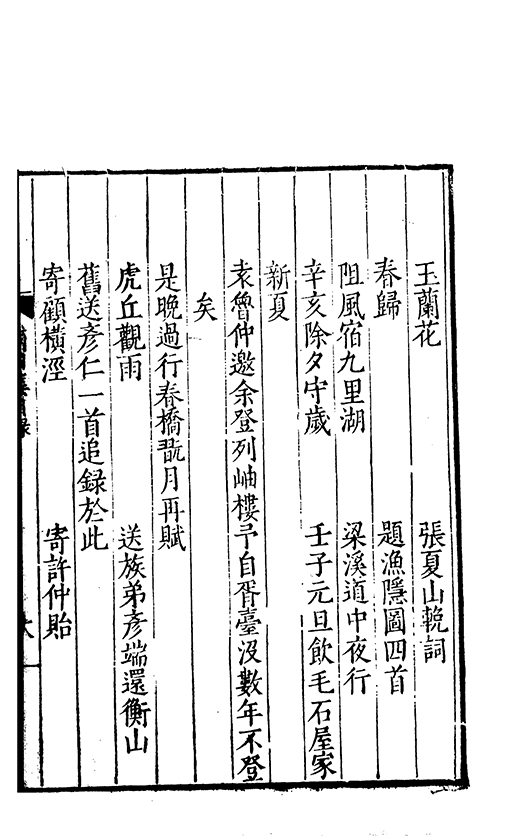 玉蘭花　張夏山輓詞
春歸　題漁隱圖四首
阻風宿九里湖　梁溪道中夜行
辛亥除夕守歲　壬子元旦飲毛石屋家
新夏
袁魯仲邀余登列岫樓予自胥臺沒數年不登
矣
是晚過行春橋翫月再賦
虎丘觀雨　送族弟彥端還衡山
舊送彥仁一首追錄於此
寄顧橫涇　寄許仲貽